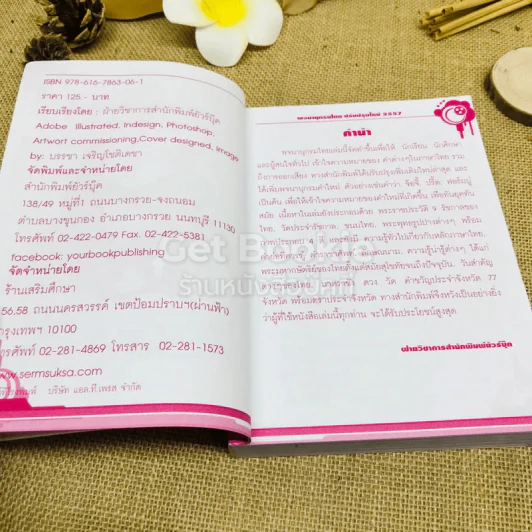 ISBN 978-616-7863-06-1
ราคา 125.- บาท
เรียบเรียงโดย : ฝ่ายวิชาการสำนักพิมพ์ยัวร์บุ๊ค
Adobe Illustrated, Indesign, Photoshop,
Artwort commissioning,Cover designed, image
by: บรรชา เจริญโชติเดชา
จัดพิมพ์และจำหน่ายโดย
สำนักพิมพ์ยัวร์บุ๊ค
138/49 หมู่ที่1 ถนนบางกรวย-จงถนอม
ตำบลบางขุนกอง อำเภอบางกรวย นนทบุรี 11130
โทรศัพท์ 02-422-0479 Fax. 02-422-5381
facebook: yourbookpublishing
จัดจำหน่ายโดย
ร้านเสริมศึกษา
56,58 ถนนนครสวรรค์ เขตป้อมปราบฯ(ผ่านฟ้า)
กรุงเทพฯ 10100
โทรศัพท์ 02-281-4869 โทรสาร 02-281-1573
www.sermsuksa.com
บริษัท แอล.ที.เพรส จำกัด
พจนานุกรมไทย ปรับปรุงใหม่ 2557
คำนำ
พจนานุกรมไทยเล่มนี้จัดทำขึ้นเพื่อให้ นักเรียน นักศึกษา
และผู้สนใจทั่วไป เข้าใจความหมายของ คำต่างๆในภาษาไทย รวม
ถึงการออกเสียง ทางสำนักพิมพ์ได้ปรับปรุงเพิ่มเติมใหม่ล่าสุด และ
ได้เพิ่มพจนานุกรมคำใหม่ ตัวอย่างเช่นคำว่า
เป็นต้น เพื่อให้เข้าใจความหมายของคำใหม่ที่เกิดขึ้น เพื่อทันยุคทัน
สมัย เนื้อหาในเล่มยังประกอบด้วย พระราชประวัติ ๙ รัชกาลของ
ไทย, วัดประจำรัชกาล, ขนมไทย, พระพุทธรูปปางต่างๆ พร้อม
ความรู้ทั่วไปเกี่ยวกับหลักภาษาไทย,
ความรู้น่ารู้ต่างๆ ได้แก่
พระมหากษัตริย์ของไทยตั้งแต่สมัยสุโขทัยจนถึงปัจจุบัน, วันสำคัญ
ดวง วัด คำขวัญประจำจังหวัด 77
จังหวัด พร้อมตราประจำจังหวัด ทางสำนักพิมพ์จึงหวังเป็นอย่างยิ่ง
ว่าผู้ที่ใช้หนังสือเล่มนี้ทุกท่าน จะได้รับประโยชน์สูงสุด
ฝ่ายวิชาการสำนักพิมพ์ยัวร์บุ๊ค
Get Bookie